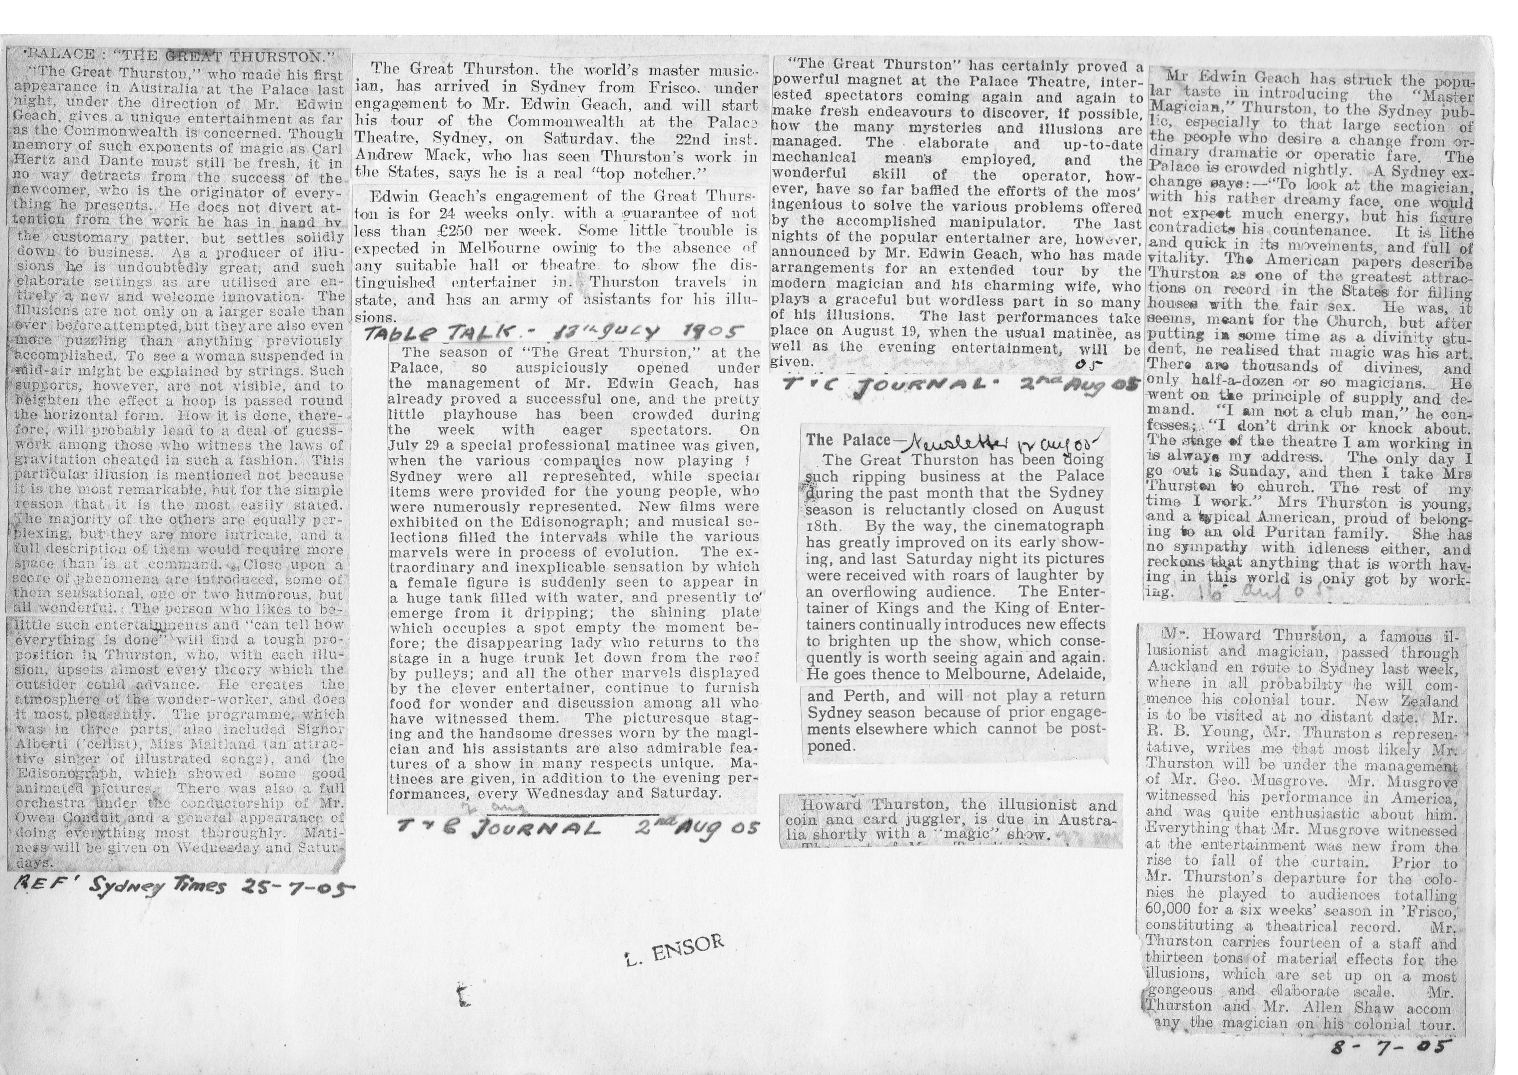 "PALACE: "THE GREAT THURSTON."
"The Great Thurston," who made his first
appearance in Australia at the Palace last
night, under the direction of Mr. Edwin
Geach, gives a unique entertainment as far
as the Commonwealth is concerned. Though
memory of such exponents of magic as Carl
Hertz and Dante must still be fresh, it in
no way detracts from the success of the
newcomer, who is the originator of every-
thing he presents. He does not divert at-
tention from the work he has in hand by
the customary patter, but settles solidly
down to business. As a producer of illu-
sions he is undoubtedly great, and such
elaborate settings as are utilised are en-
tirely a new and welcome innovation. The
illusions are not only on a larger scale than
ever before attempted, but they are also even
more puzzling than anything previously
accomplished. To see a woman suspended in
mid-air might be explained by strings. Such
supports, however, are not visible, and to
heighten the effect a hoop is passed round
the horizontal form. How it is done, there-
fore, will probably lead to a deal of guess-
work among those who witness the laws of
gravitation cheated in such a fashion. This
particular illusion is mentioned not because
it is the most remarkable, but for the simple
reason that it is the most easily stated.
The majority of the others are equally per-
plexing, but they are more intricate, and a
full description of them would require more
space than is at command. Close upon a
score of phenomena are introduced, some of
them sensational, one or two humorous, but
all wonderful. The person who likes to be-
little such entertainments and "can tell how
everything is done" will find a tough pro-
position in Thurston, who, with each illu-
sion, upsets almost every theory which the
outsider could advance. He creates the
atmosphere of the wonder-worker, and does
it most pleasantly. The programme, which
was in three parts, also included Signor
Alberti ('cellist), Miss Maitland (an attrac-
tive singer of illustrated songs), and the
Edisonograph, which showed some good
animated pictures. There was also a full
orchestra under the conductorship of Mr.
Owen Conduit and a general appearance of
doing everything most thoroughly. Mati-
nees will be given on Wednesday and Satur-
days.
REF' Sydney Times 25-7-05
The Great Thurston, the world's master music-
ian, has arrived in Sydney from Frisco, under
engagement to Mr. Edwin Geach, and will start
his tour of the Commonwealth at the Palace
Theatre, Sydney, on Saturday, the 22nd inst.
Andrew Mack, who has seen Thurston's work in
the States, says he is a real "top notcher."
Edwin Geach's engagement of the Great Thurs-
ton is for 24 weeks only, with a guarantee of not
less than £250 per week. Some little trouble is
expected in Melbourne owing to the absence of
any suitable hall or theatre to show the dis-
tinguished entertainer in. Thurston travels in
state, and has an army of asistants for his illu-
sions.
TABLE TALK - 13th JULY 1905
The season of "The Great Thurston," at the
Palace, so auspiciously opened under
the management of Mr. Edwin Geach, has
already proved a successful one, and the pretty
little playhouse has been crowded during
the week with eager spectators. On
July 29 a special professional matinee was given,
when the various companies now playing
Sydney were all represented, while special
items were provided for the young people, who
were numerously represented. New films were
exhibited on the Edisonograph; and musical se-
lections filled the intervals while the various
marvels were in process of evolution. The ex-
traordinary and inexplicable sensation by which
a female figure is suddenly seen to appear in
a huge tank filled with water, and presently to
emerge from it dripping; the shining plate
which occupies a spot empty the moment be-
fore; the disappearing lady who returns to the
stage in a huge trunk let down from the roof
by pulleys; and all the other marvels displayed
by the clever entertainer, continue to furnish
food for wonder and discussion among all who
have witnessed them. The picturesque stag-
ing and the handsome dresses worn by the magi-
cian and his assistants are also admirable fea-
tures of a show in many respects unique. Ma-
tinees are given, in addition to the evening per-
formances, every Wednesday and Saturday.
2 aug
T & C JOURNAL 2nd AUG 05
"The Great Thurston" has certainly proved a
powerful magnet at the Palace Theatre, inter-
ested spectators coming again and again to
make fresh endeavours to discover, if possible,
how the many mysteries and illusions are
managed. The elaborate and up-to-date
mechanical means employed, and the
wonderful skill of the operator, how-
ever, have so far baffled the efforts of the mos'
ingenious to solve the various problems offered
by the accomplished manipulator. The last
nights of the popular entertainer are, however,
announced by Mr. Edwin Geach, who has made
arrangements for an extended tour by the
modern magician and his charming wife, who
plays a graceful but wordless part in so many
of his illusions. The last performances take
place on August 19, when the usual matinée, as
well as the evening entertainment, will be
given.
05
T & C JOURNAL - 2nd Aug 05
The Palace— Newsletter 12 aug 05
The Great Thurston has been doing
such ripping business at the Palace
during the past month that the Sydney
season is reluctantly closed on August
18th. By the way, the cinematograph
has greatly improved on its early show-
ing, and last Saturday night its pictures
were received with roars of laughter by
an overflowing audience. The Enter-
tainer of Kings and the King of Enter-
tainers continually introduces new effects
to brighten up the show, which conse-
quently is worth seeing again and again.
He goes thence to Melbourne, Adelaide,
and Perth, and will not play a return
Sydney season because of prior engage-
ments elsewhere which cannot be post-
poned.
Howard Thurston, the illusionist and
coin and card juggler, is due in Austra-
lia shortly with a "magic" show.
Mr Edwin Geach has struck the popu-
lar taste in introducing the "Master
Magician," Thurston, to the Sydney pub-
lic, especially to that large section of
the people who desire a change from or-
dinary dramatic or operatic fare. The
Palace is crowded nightly. A Sydney ex-
change says:—"To look at the magician,
with his rather dreamy face, one would
not expect much energy, but his figure
contradicts his countenance. It is lithe
and quick in its movements, and full of
vitality. The American papers describe
Thurston as one of the greatest attrac-
tions on record in the States for filling
houses with the fair sex. He was, it
seems, meant for the Church, but after
putting in some time as a divinity stu-
dent, he realised that magic was his art.
There are thousands of divines, and
only half-a-dozen or so magicians. He
went on the principle of supply and de-
mand. "I am not a club man," he con-
fesses; "I don't drink or knock about.
The stage of the theatre I am working in
is always my address. The only day I
go out is Sunday, and then I take Mrs
Thurston to church. The rest of my
time I work." Mrs Thurston is young,
and a typical American, proud of belong-
ing to an old Puritan family. She has
no sympathy with idleness either, and
reckons that anything that is worth hav-
ing in this world is only got by work-
ing.
16 aug 05
Mr. Howard Thurston, a famous il-
lusionist and magician, passed through
Auckland en route to Sydney last week,
where in all probability he will com-
mence his colonial tour. New Zealand
is to be visited at no distant date. Mr.
R. B. Young, Mr. Thurston s represen-
tative, writes me that most likely Mr.
Thurston will be under the management
of Mr. Geo. Musgrove. Mr. Musgrove
witnessed his performance in America,
and was quite enthusiastic about him.
Everything that Mr. Musgrove witnessed
at the entertainment was new from the
rise to fall of the curtain. Prior to
Mr. Thurston's departure for the colo-
nies he played to audiences totalling
60,000 for a six weeks' season in 'Frisco,
constituting a theatrical record. Mr.
Thurston carries fourteen of a staff and
thirteen tons of material effects for the
illusions, which are set up on a most
gorgeous and elaborate scale. Mr.
Thurston and Mr. Allen Shaw accom
any the magician on his colonial tour.
8-7-05
L. ENSOR